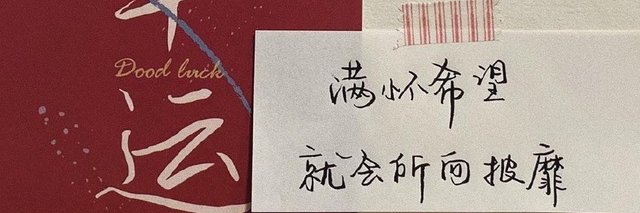 Dood luck
运
满怀希望
就会所向披靡